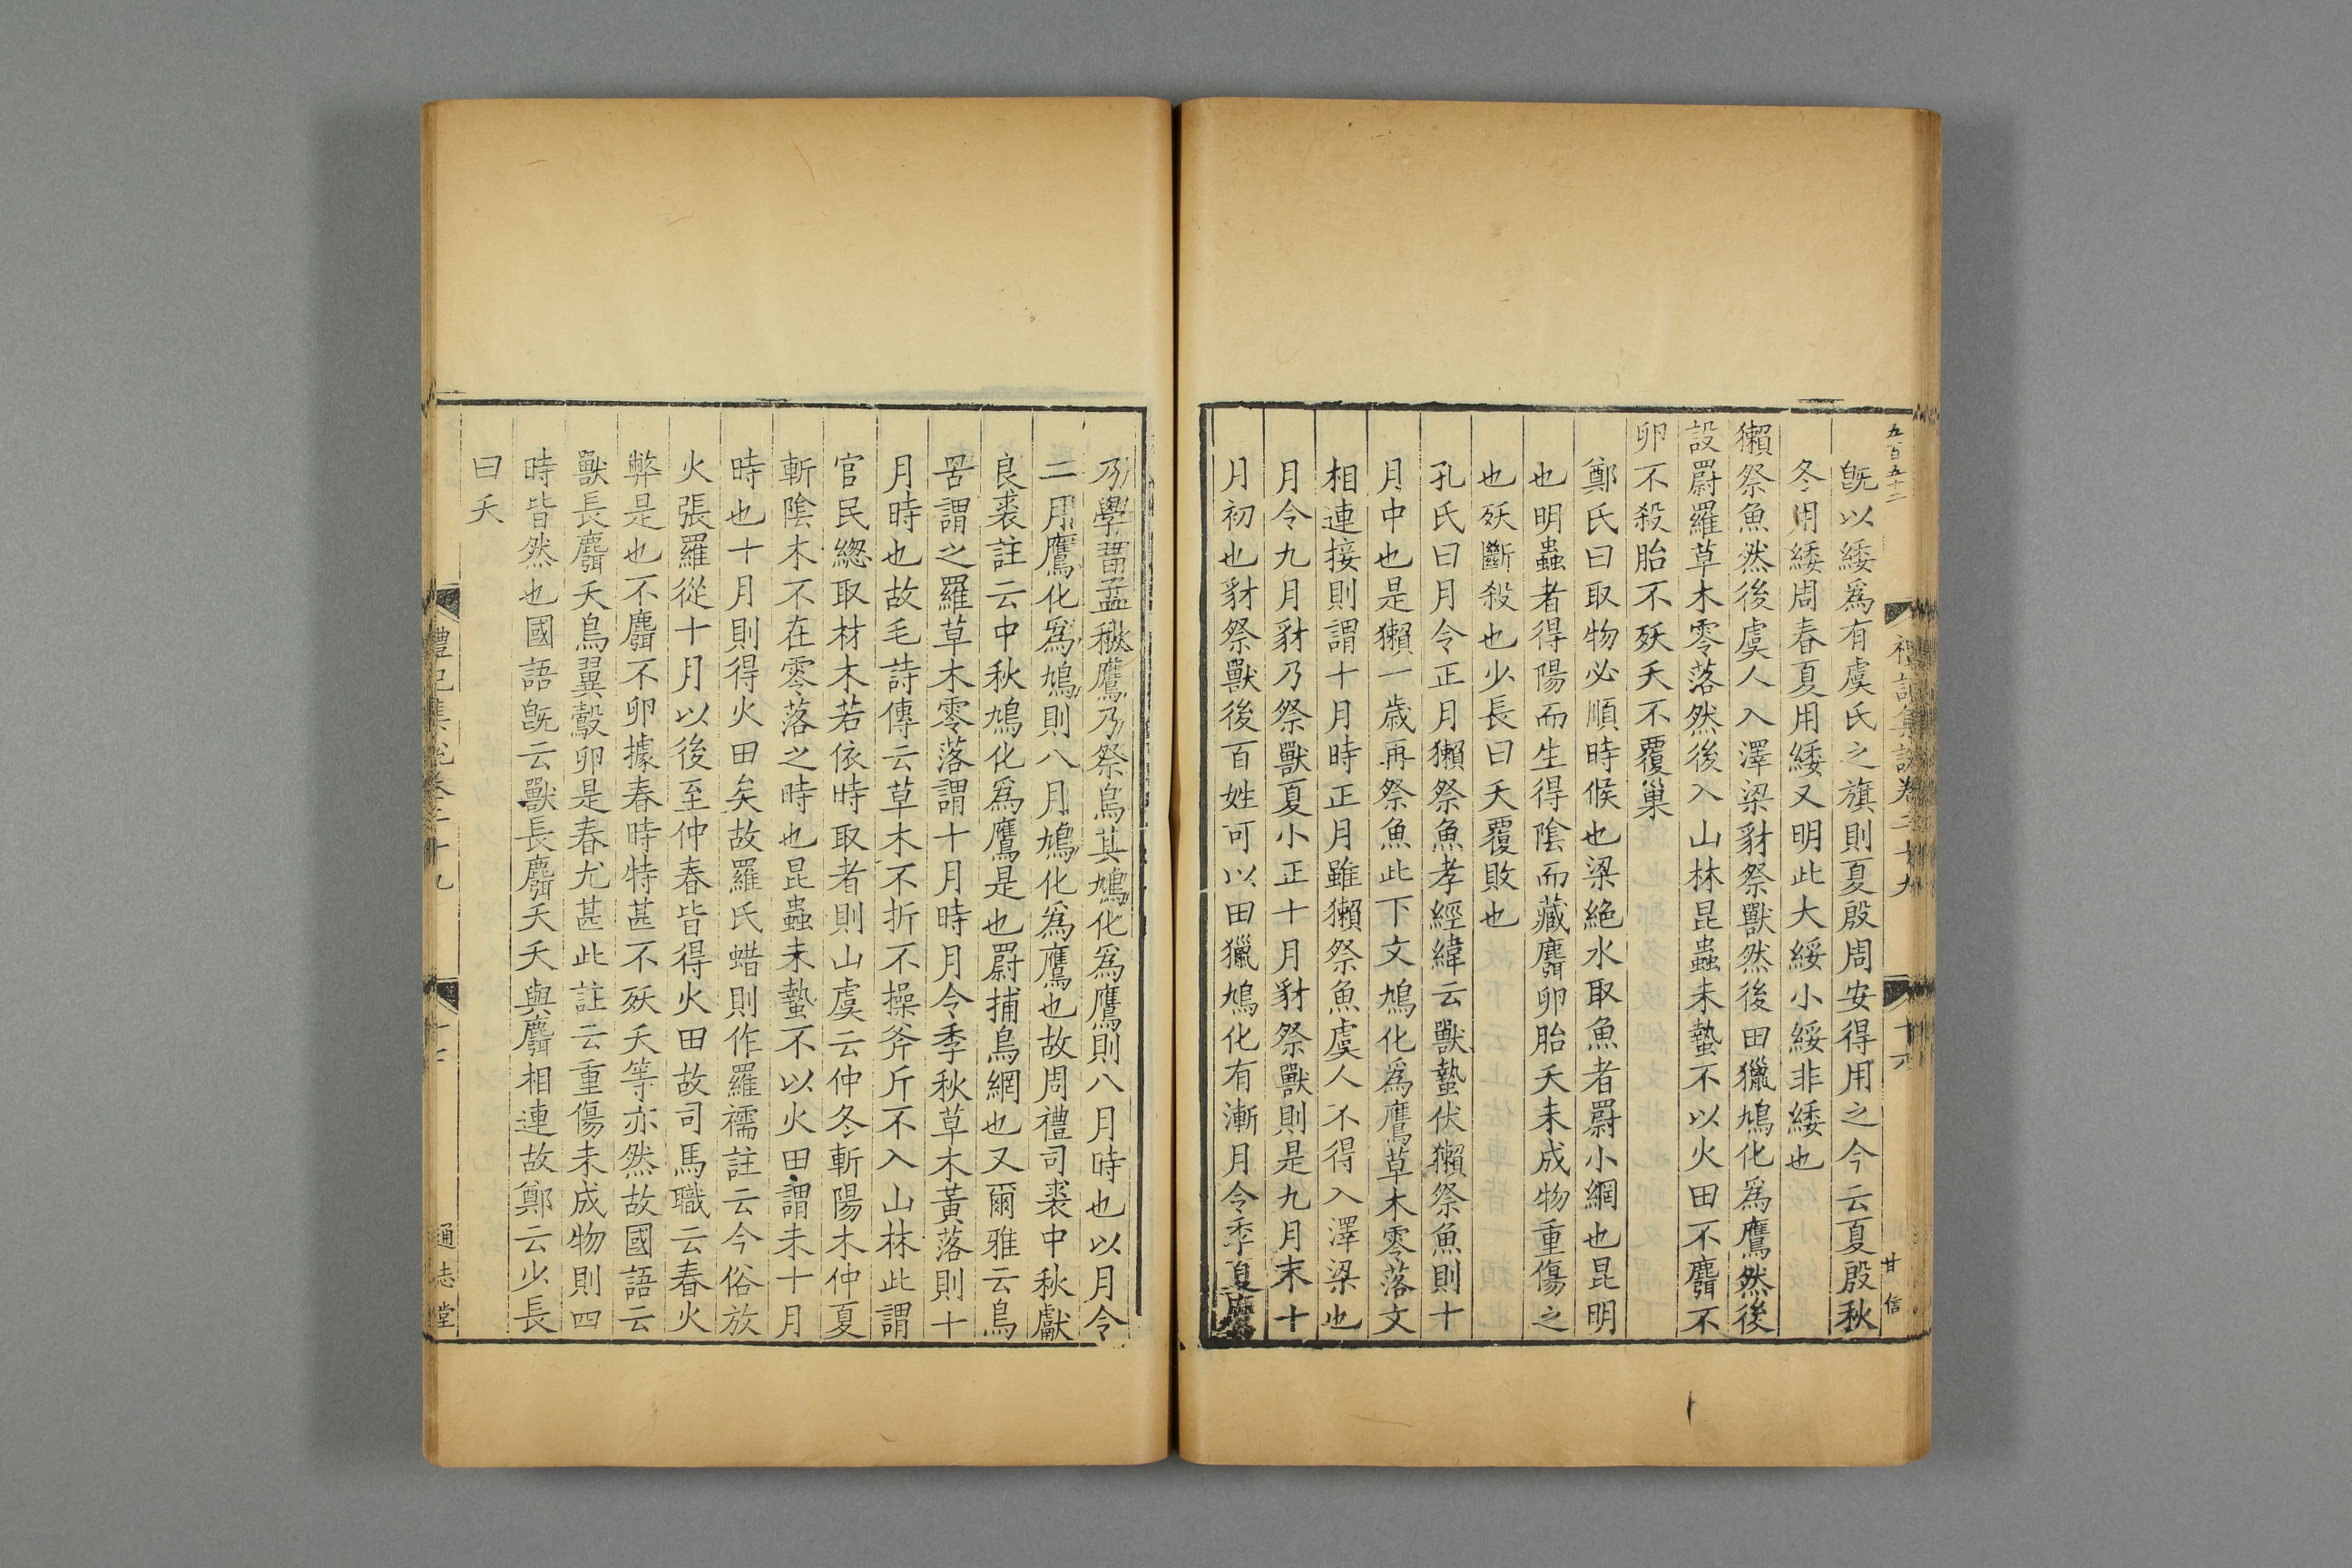 五百五十二
禮記集說卷二十九
十六
甘信
旣以緌爲有虞氏之旗則夏殷周安得用之今云夏殷秋
冬用緌周春夏用緌又明此大綏小綏非緌也
獺祭魚然後虞人入澤梁豺祭獸然後田獵鳩化爲鷹然後
設罻羅草木零落然後入山林昆蟲未蟄不以火田不麛不
卵不殺胎不殀夭不覆巢
鄭氏曰取物必順時候也梁絶水取魚者罻小網也昆明
也明蟲者得陽而生得陰而藏麛卵胎夭未成物重傷之
也殀斷殺也少長曰夭覆敗也
孔氏曰月令正月獺祭魚孝經緯云獸蟄伏獺祭魚則十
月中也是獺一歲再祭魚此下文鳩化爲鷹草木零落文
相連接則謂十月時正月雖獺祭魚虞人不得入澤梁也
月令九月豺乃祭獸夏小正十月豺祭獸則是九月末十
月初也豺祭獸後百姓可以田獵鳩化有漸月令季夏鷹
乃學習孟秋鷹乃祭鳥其鳩化爲鷹則八月時也以月令
二月鷹化爲鳩則八月鳩化爲鷹也故周禮司裘中秋獻
良裘註云中秋鳩化爲鷹是也罻捕鳥網也又爾雅云鳥
罟謂之羅草木零落謂十月時月令季秋草木黃落則十
月時也故毛詩傳云草木不折不操斧斤不入山林此謂
官民緫取材木若依時取者則山虞云仲冬斬陽木仲夏
斬陰木不在零落之時也昆蟲未蟄不以火田謂未十月
時也十月則得火田矣故羅氏蜡則作羅襦註云今俗放
火張羅從十月以後至仲春皆得火田故司馬職云春火
弊是也不麛不卵據春時特甚不殀夭等亦然故國語云
獸長麛夭鳥翼鷇卵是春尤甚此註云重傷未成物則四
時皆然也國語旣云獸長麛夭夭與麛相連故鄭云少長
曰夭
禮記集說卷二十九
通志堂